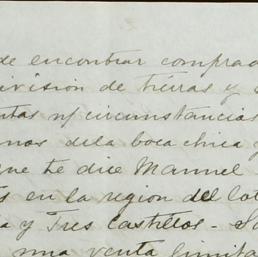 de encontrar comprad
ivision de tierras y
tas n/ circunstancias
nos dela boca chica y
que te dice Manuel
s en la region del lot
a y Tres Castillos - S
una venta limita